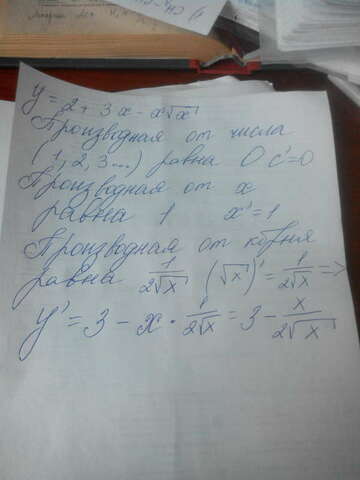 y = 2 + 3x - x√x
Производная от числа
(1, 2, 3...) равна 0 c' = 0
Производная от x
равна 1 x' = 1
Производная от корня
равна 1/2√x (√x)' = 1/2√x =>
y' = 3 - x · 1/2√x = 3 - x/2√x